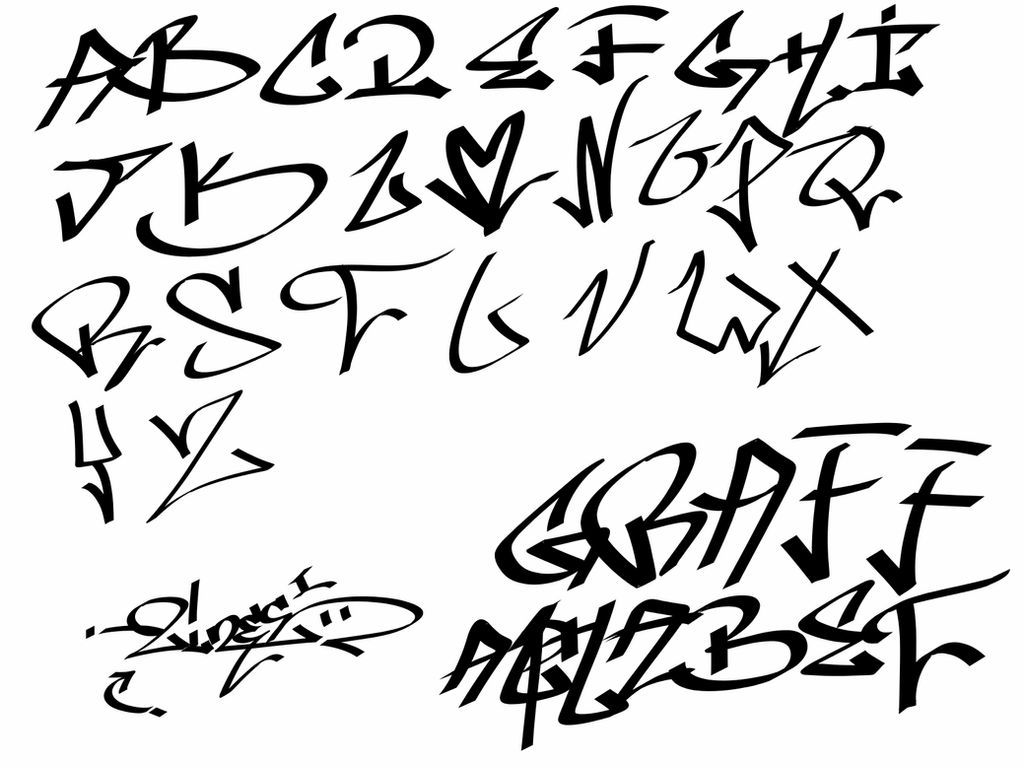 A B C D E F G H I
J K L M N O P Q
R S T U V W X
Y Z
GRAFF
ALPHABET